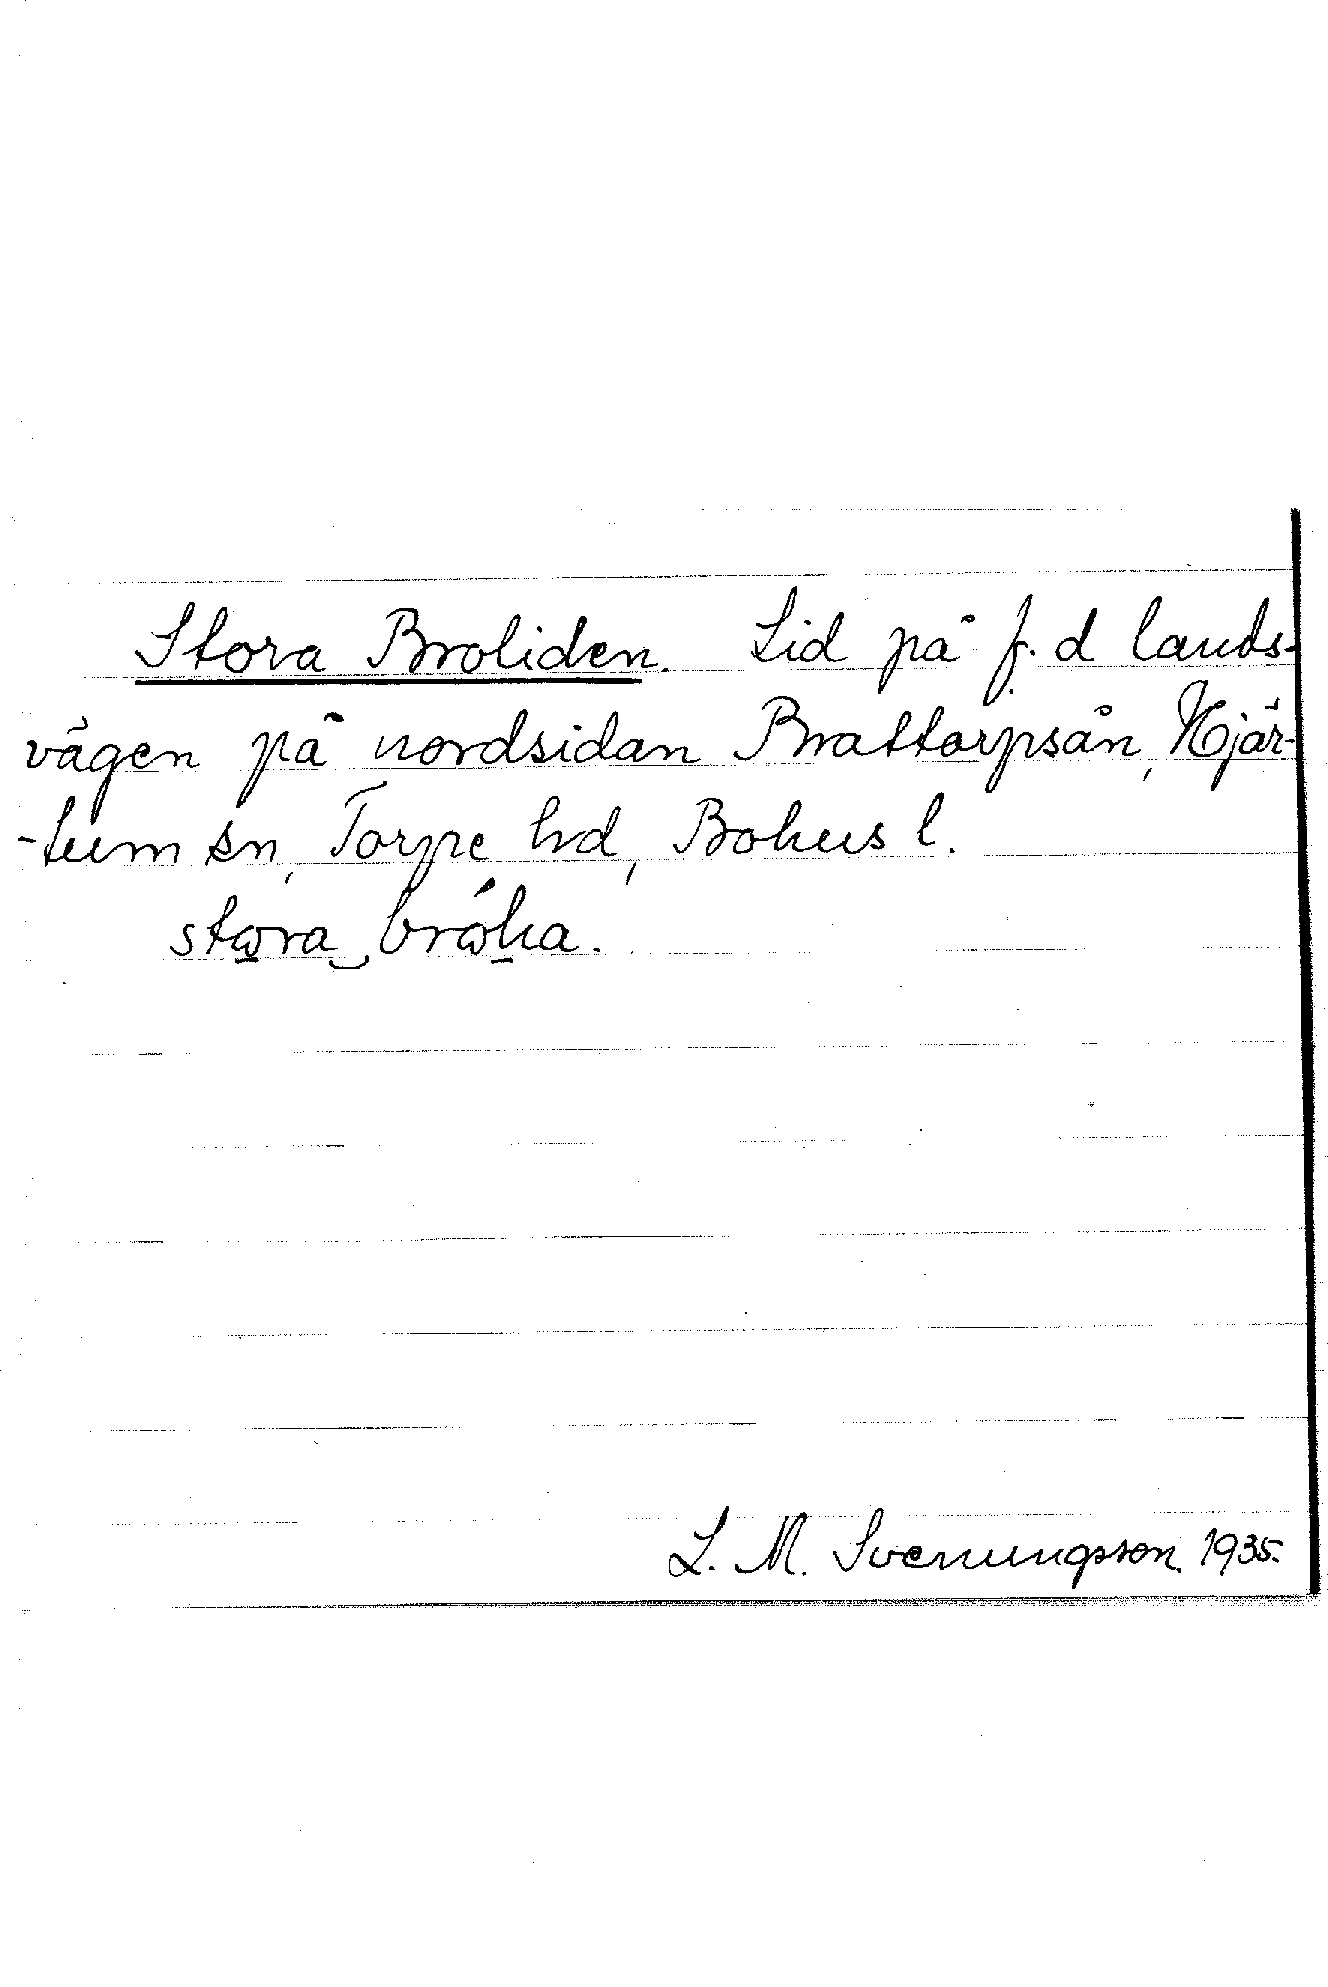 Stora Broliden. Lid på f. d lands-
vägen på nordsidan Brattorpsån, Hjär-
-tum sn, Torpe hd, Bohus l.
stωra bráka.
L. M. Svenungsson 1935.